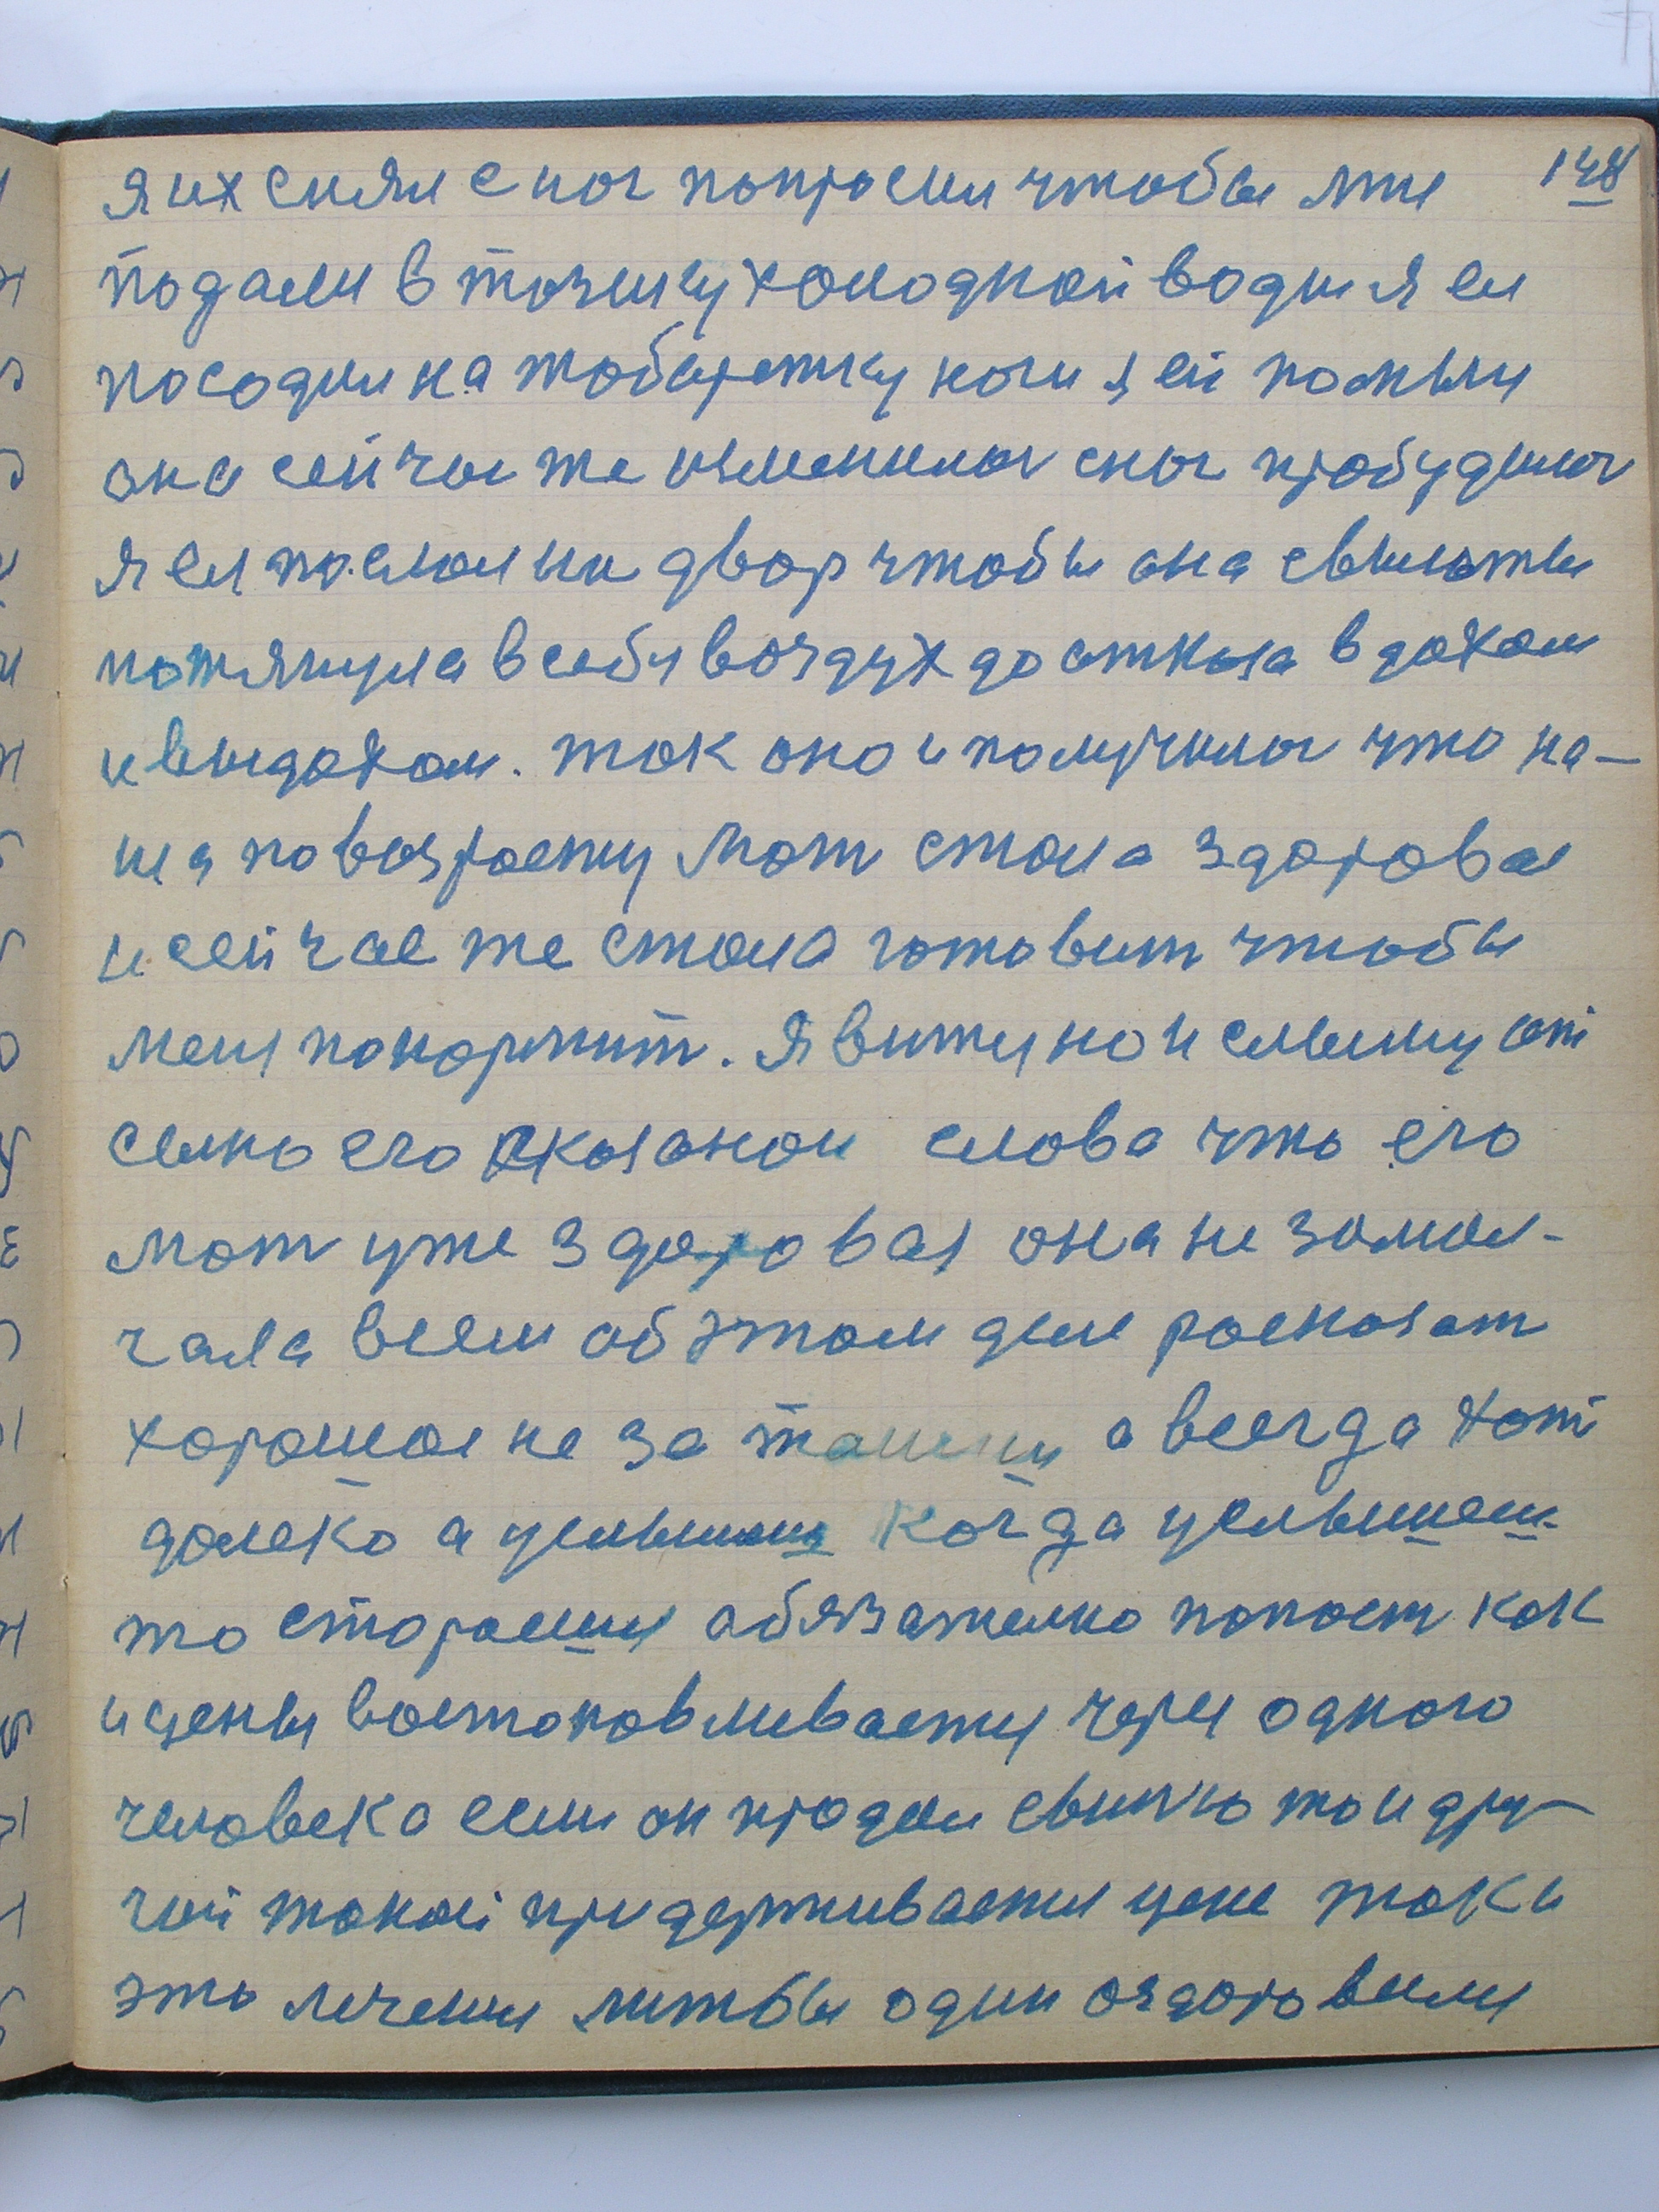 148
я их снял с ног попросил чтобы мне
подали в тазику холодной воды и я ея
посодил на тобуретку ноги я ей помыл
она сейчас же изменилас снаг пробудилас
я ея послал на двор чтобы она свысоты
потянула в себя воздух до отказа вдохом
и выдохом. ток оно и получилос что на-
ша по возрасту мат стала здоровае
и сейчас же стала готовит чтобы
меня покормит. Я вижу но и слышу от
сыно его сказаном слова что его
мат уже здоровая она не замол-
чала всем об этом деле расказат
хорошое не за таишы а всегда хот
долеко а услышыш когда услышеш
то стораешся обязателно попаст как
и цены востоновливается через одного
человека если он продал свинью то и дру-
гой такой придерживается цене так и
это лечения житбы один оздоровился